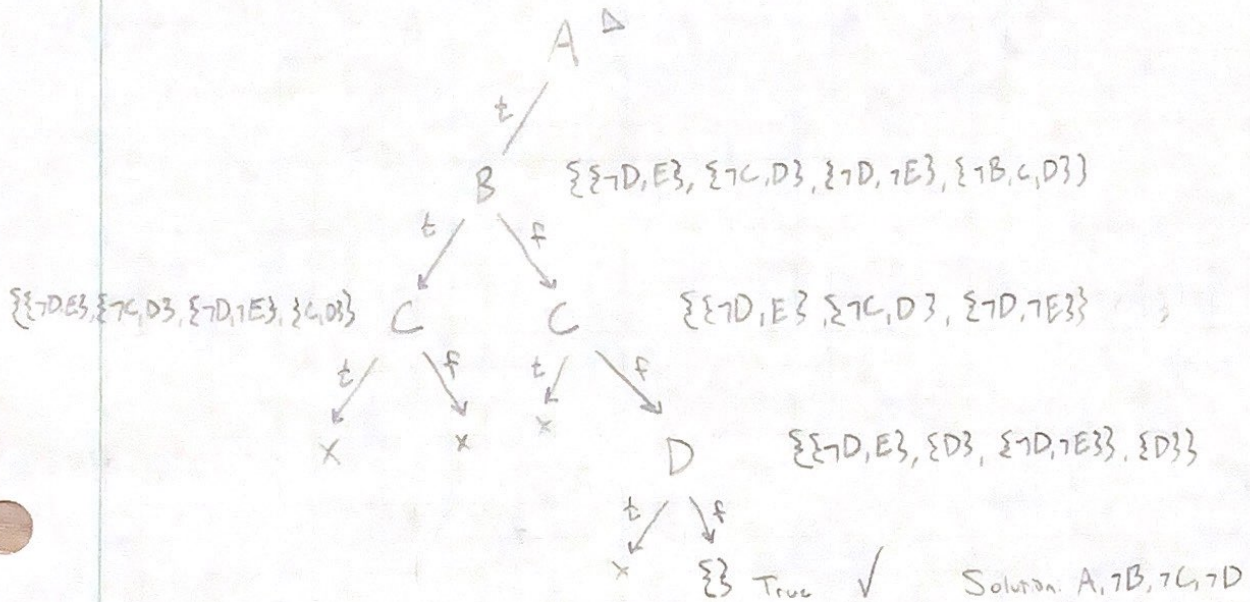 A Δ
t
B {{¬D,E}, {¬C,D}, {¬D,¬E}, {¬B,C,D}}
t f
{{¬D,E},{¬C,D},{¬D,¬E},{C,D}} C C {{¬D,E},{¬C,D},{¬D,¬E}}
t f t f
x x x
D {{¬D,E}, {D}, {¬D,¬E}}, {D}}
t f
x {} True ✓ Solution. A,¬B,¬C,¬D